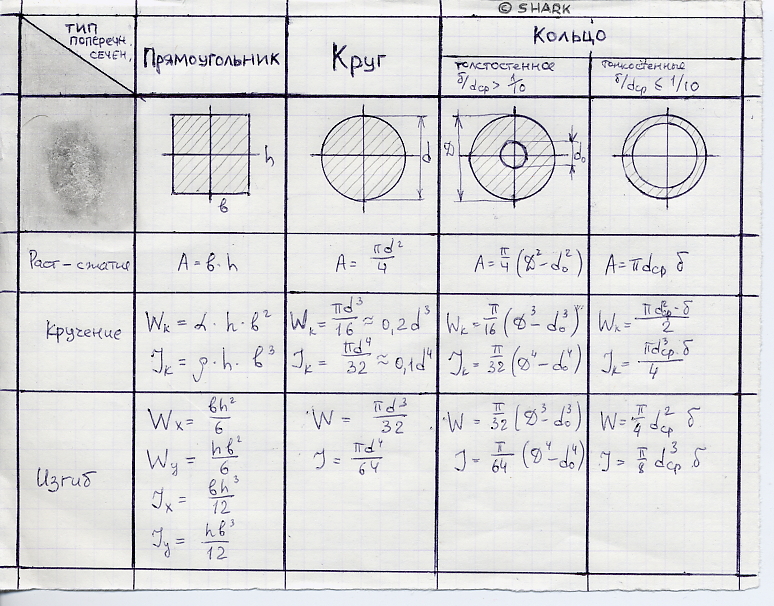 © SHARK
ТИП
ПОПЕРЕЧН.
СЕЧЕН.
Прямоугольник
Круг
Кольцо
толстостенное
б/dср > 1/10
тонкостенные
б/dср ≤ 1/10
h
в
d
D
d₀
Раст-сжатие
A = в·h
A = πd²/4
A = π/4 (D² – d₀²)
A = πdср б
Кручение
Wк = α·h·в²
Jк = ρ·h·в³
Wк = πd³/16 ≈ 0,2d³
Jк = πd⁴/32 ≈ 0,1d⁴
Wк = π/16 (D³ – d₀³)
Jк = π/32 (D⁴ – d₀⁴)
Wк = πd²ср·б/2
Jк = πd³ср·б/4
Изгиб
Wx = вh²/6
Wy = hв²/6
Jx = вh³/12
Jy = hв³/12
W = πd³/32
J = πd⁴/64
W = π/32 (D³ – d₀³)
J = π/64 (D⁴ – d₀⁴)
W = π/4 d²ср б
J = π/8 d³ср б